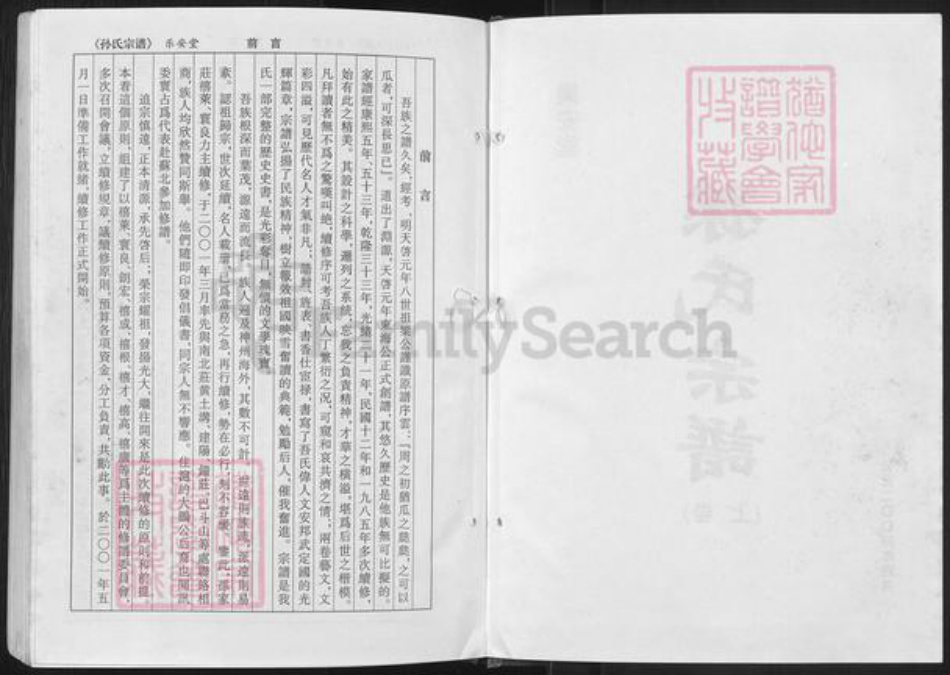 《孙氏宗譜》 乐安堂 前言
前言
吾族之譜久矣,經考,明天啓元年八世祖榮公謹識原譜序雲:「周之初猶瓜之瓞瓞,之可以
瓜者,可深長思已」。道出了淵源,天啓元年東海公正式創譜,其悠久歷史是他族無可比擬的。
家譜經康熙五年、五十三年,乾隆三十三年,光緒二十一年,民國十二年和一九八五年多次續修,
始有此之精美。其設計之科學,邏列之系統,忘我之負責精神,才華之橫溢,堪爲后世之楷模。
凡拜讀者無不爲之驚嘆叫絶,續修序可考吾族人丁繁衍之况,可窺和衷共濟之情;兩卷藝文,文
彩四溢,可見歷代名人才氣非凡;誥封、旌表、書香仕宦禄,書寫了吾氏偉人文安邦武定國的光
輝篇章,宗譜弘揚了民族精神,樹立報效祖國映雪奮讀的典範,勉勵后人,催我奮進。宗譜是我
氏一部完整的歷史史書,是光彩奪目、無價的文學瑰寶。
吾族根深而葉茂,源遠而流長,族人遍及神州海外,其數不可計,世遠則族疏,派遠則易
紊。認祖歸宗,世次延續,名人載譜,已爲當務之急,再行續修,勢在必行,刻不容緩,鑒此,孫家
莊禧萊、寰良力主續修,于二〇〇一年三月率先與南北莊黄土溝、建陽、鐘莊、巴斗山等處聯絡相
商,族人均欣然贊同斯舉。他們隨即印發倡儀書,同宗人無不響應。住滬的大鵬公后裔也聞訊
委寰占爲代表赴蘇北參加修譜。
追宗慎遠,正本清源,承先啓后;榮宗耀祖,發揚光大,繼往開來是此次續修的原則和前提,
本着這個原則,組建了以禧萊、寰良、劍宏、禧成、禧根、禧才、禧高、禧廣等爲主體的修譜委員會,
多次召開會議,立續修規章,議續修原則,預算各項資金,分工負責,共勷此事。於二〇〇一年五
月一日準備工作就緒,續修工作正式開始。
猶他家
譜學會
收藏
FamilySearch
孫氏宗譜